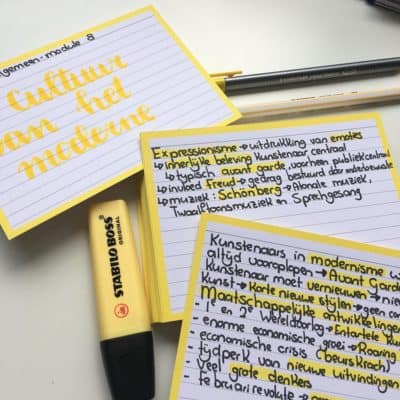 algemeen-module 8
Cultuur
van het
moderne
Expressionisme → uitdrukking van emoties
↳ innerlijke beleving kunstenaar centraal
↳ typisch avant garde, voorheen publiek centraal
↳ invloed Freud → gedrag bestuurd door onderbewuste
↳ muziek: Schönberg → Atonale muziek,
Twaalftoonsmuziek en Sprechgesang
STABILO BOSS
ORIGINAL
Kunstenaars in modernisme
altijd vooroplopen → Avant Garde
Kunstenaar moet vernieuwen → nieu
Kunst → korte nieuwe stijlen → geen
Maatschappelijke ontwikkelingen
- 1e en 2e Wereldoorlog → Entartete Kun
- enorme economische groei → Roaring
- economische crisis (beurskrach)
- tijdperk van nieuwe uitvindingen
- Veel grote denkers
- februari revolutie →